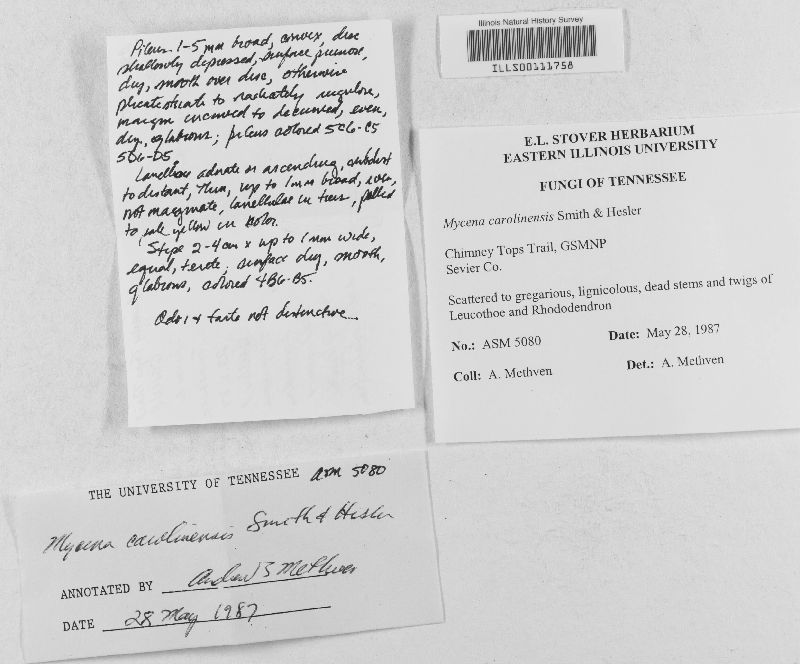 Pileus 1-5 mm broad, convex, disc
shallowly depressed, surface pruinose,
dry, smooth over disc, otherwise
plicatestriate to radiately rugulose,
margin incurved to decurved, even,
dry, glabrous; pileus colored 5C6-C5
5D6-D5.
Lamellae adnate or ascending, subdist
to distant, thin, up to 1mm broad, even,
not marginate, lamellulae in tiers, pallid
to pale yellow in color.
Stipe 2-4cm x up to 1mm wide,
equal, terete, surface dry, smooth,
glabrous, colored 4B6-B5.
Odor & taste not distinctive
Illinois Natural History Survey
ILLS00111758
E.L. STOVER HERBARIUM
EASTERN ILLINOIS UNIVERSITY
FUNGI OF TENNESSEE
Mycena carolinensis Smith & Hesler
Chimney Tops Trail, GSMNP
Sevier Co.
Scattered to gregarious, lignicolous, dead stems and twigs of
Leucothoe and Rhododendron
No.: ASM 5080 Date: May 28, 1987
Coll: A. Methven Det.: A. Methven
THE UNIVERSITY OF TENNESSEE ASM 5080
Mycena carolinensis Smith & Hesler
ANNOTATED BY Andrew S Methven
DATE 28 May 1987